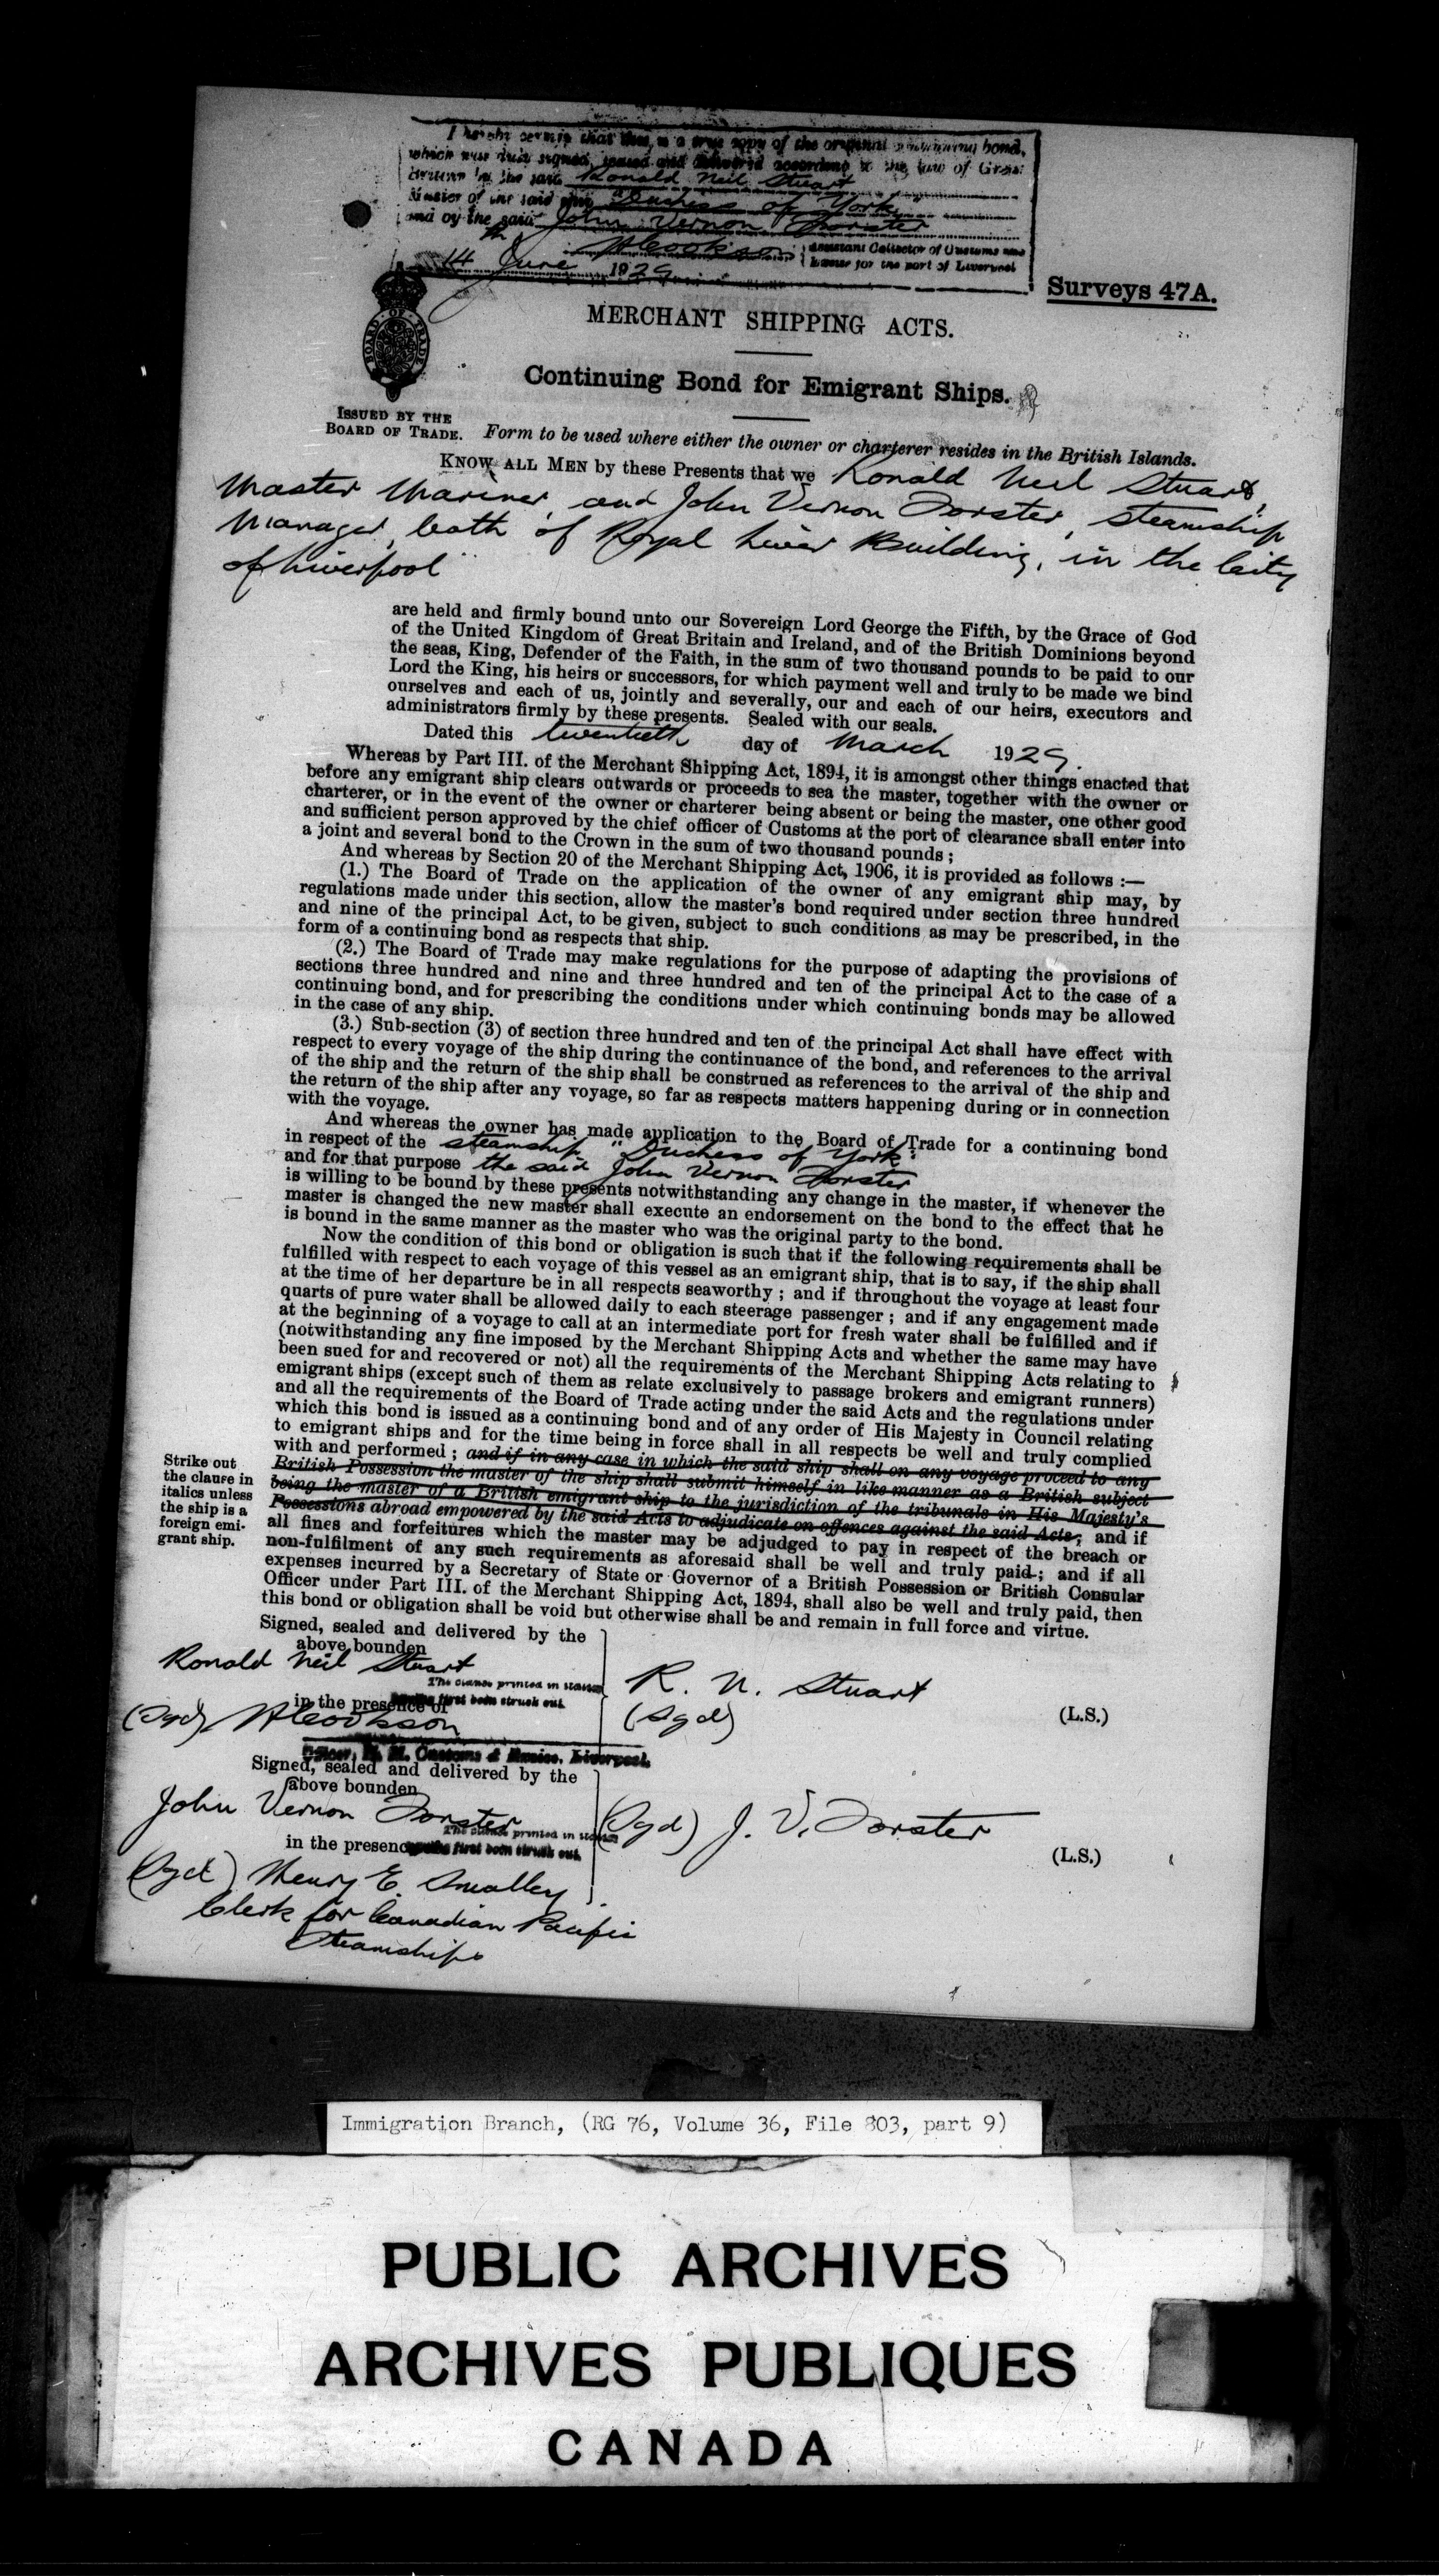 I hereby certify that this is a true copy of the original continuing bond,
which was duly signed, sealed and delivered according to the law of Great
Britain by the said Ronald Neil Stuart
Master of the said ship "Duchess of York"
and by the said John Vernon Forster
14th June 1929 Assistant Collector of Customs and
for the port of Liverpool
Surveys 47A.
BOARD OF TRADE
MERCHANT SHIPPING ACTS.
Continuing Bond for Emigrant Ships.
ISSUED BY THE
BOARD OF TRADE.
Form to be used where either the owner or charterer resides in the British Islands.
KNOW ALL MEN by these Presents that we Ronald Neil Stuart,
Master Mariner, and John Vernon Forster, Steamship
Manager, both of Royal Liver Building, in the City
of Liverpool
are held and firmly bound unto our Sovereign Lord George the Fifth, by the Grace of God
of the United Kingdom of Great Britain and Ireland, and of the British Dominions beyond
the seas, King, Defender of the Faith, in the sum of two thousand pounds to be paid to our
Lord the King, his heirs or successors, for which payment well and truly to be made we bind
ourselves and each of us, jointly and severally, our and each of our heirs, executors and
administrators firmly by these presents. Sealed with our seals.
Dated this twentieth day of March 1929.
Whereas by Part III. of the Merchant Shipping Act, 1894, it is amongst other things enacted that
before any emigrant ship clears outwards or proceeds to sea the master, together with the owner or
charterer, or in the event of the owner or charterer being absent or being the master, one other good
and sufficient person approved by the chief officer of Customs at the port of clearance shall enter into
a joint and several bond to the Crown in the sum of two thousand pounds ;
And whereas by Section 20 of the Merchant Shipping Act, 1906, it is provided as follows :—
(1.) The Board of Trade on the application of the owner of any emigrant ship may, by
regulations made under this section, allow the master's bond required under section three hundred
and nine of the principal Act, to be given, subject to such conditions as may be prescribed, in the
form of a continuing bond as respects that ship.
(2.) The Board of Trade may make regulations for the purpose of adapting the provisions of
sections three hundred and nine and three hundred and ten of the principal Act to the case of a
continuing bond, and for prescribing the conditions under which continuing bonds may be allowed
in the case of any ship.
(3.) Sub-section (3) of section three hundred and ten of the principal Act shall have effect with
respect to every voyage of the ship during the continuance of the bond, and references to the arrival
of the ship and the return of the ship shall be construed as references to the arrival of the ship and
the return of the ship after any voyage, so far as respects matters happening during or in connection
with the voyage.
And whereas the owner has made application to the Board of Trade for a continuing bond
in respect of the steamship "Duchess of York"
and for that purpose the said John Vernon Forster
is willing to be bound by these presents notwithstanding any change in the master, if whenever the
master is changed the new master shall execute an endorsement on the bond to the effect that he
is bound in the same manner as the master who was the original party to the bond.
Now the condition of this bond or obligation is such that if the following requirements shall be
fulfilled with respect to each voyage of this vessel as an emigrant ship, that is to say, if the ship shall
at the time of her departure be in all respects seaworthy ; and if throughout the voyage at least four
quarts of pure water shall be allowed daily to each steerage passenger ; and if any engagement made
at the beginning of a voyage to call at an intermediate port for fresh water shall be fulfilled and if
(notwithstanding any fine imposed by the Merchant Shipping Acts and whether the same may have
been sued for and recovered or not) all the requirements of the Merchant Shipping Acts relating to
emigrant ships (except such of them as relate exclusively to passage brokers and emigrant runners)
and all the requirements of the Board of Trade acting under the said Acts and the regulations under
which this bond is issued as a continuing bond and of any order of His Majesty in Council relating
to emigrant ships and for the time being in force shall in all respects be well and truly complied
with and performed ; and if in any case in which the said ship shall on any voyage proceed to any
British Possession the master of the ship shall submit himself in like manner as a British subject
being the master of a British emigrant ship to the jurisdiction of the tribunals in His Majesty's
Possessions abroad empowered by the said Acts to adjudicate on offences against the said Acts, and if
all fines and forfeitures which the master may be adjudged to pay in respect of the breach or
non-fulfilment of any such requirements as aforesaid shall be well and truly paid ; and if all
expenses incurred by a Secretary of State or Governor of a British Possession or British Consular
Officer under Part III. of the Merchant Shipping Act, 1894, shall also be well and truly paid, then
this bond or obligation shall be void but otherwise shall be and remain in full force and virtue.
Strike out
the clause in
italics unless
the ship is a
foreign emi-
grant ship.
Signed, sealed and delivered by the
above bounden
Ronald Neil Stuart
The clause printed in italics
having first been struck out.
in the presence of
(Sgd) H Cookson
Officer, H. M. Customs & Excise, Liverpool.
R. N. Stuart
(Sgd)
(L.S.)
Signed, sealed and delivered by the
above bounden
John Vernon Forster
The clause printed in italics
having first been struck out.
in the presence
(Sgd) J. V. Forster
(L.S.)
(Sgd) Henry E. Smalley
Clerk for Canadian Pacific
Steamships
Immigration Branch, (RG 76, Volume 36, File 803, part 9)
PUBLIC ARCHIVES
ARCHIVES PUBLIQUES
CANADA